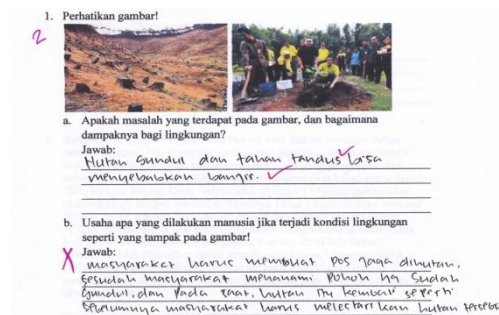 1. Perhatikan gambar!
2
a. Apakah masalah yang terdapat pada gambar, dan bagaimana
dampaknya bagi lingkungan?
Jawab:
Hutan Gundul dan tahan tandus bisa
menyebabkan banjir.
b. Usaha apa yang dilakukan manusia jika terjadi kondisi lingkungan
seperti yang tampak pada gambar!
Jawab:
masyarakat harus membuat pos jaga dihutan,
sesudah masyarakat menanami pohon yg sudah
gundul, dan pada saat, hutan itu kembali seperti
sebelumnya masyarakat harus melestarikan hutan tersebut